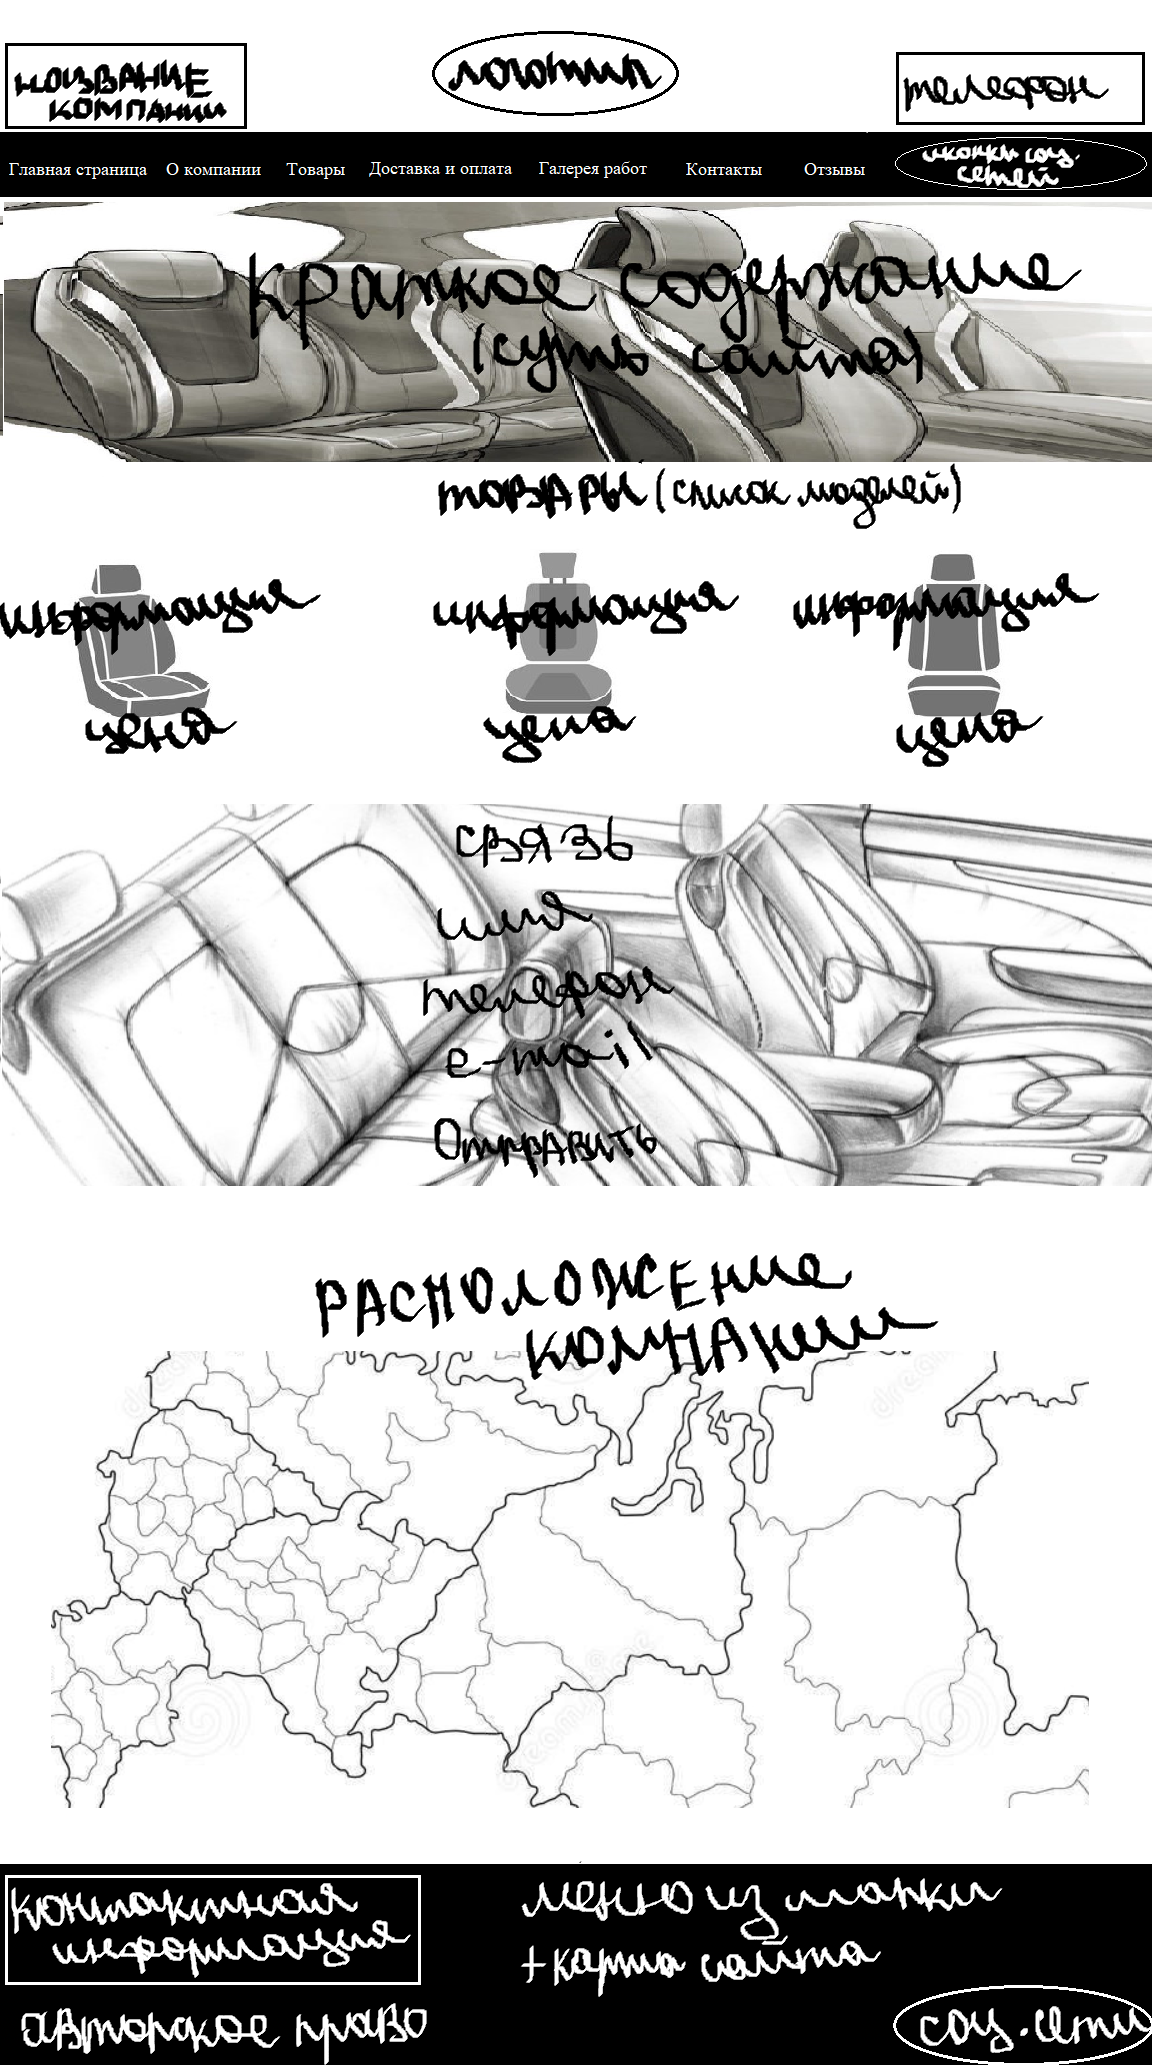 название
компании
логотип
телефон
Главная страница О компании Товары Доставка и оплата Галерея работ Контакты Отзывы
иконки соц.
сетей
Краткое содержание
(суть сайта)
товары (список моделей)
информация информация информация
цена цена цена
связь
имя
телефон
e-mail
Отправить
расположение
компании
dreamstime
контактная
информация
меню из шапки
+ карта сайта
авторское право
соц. сети